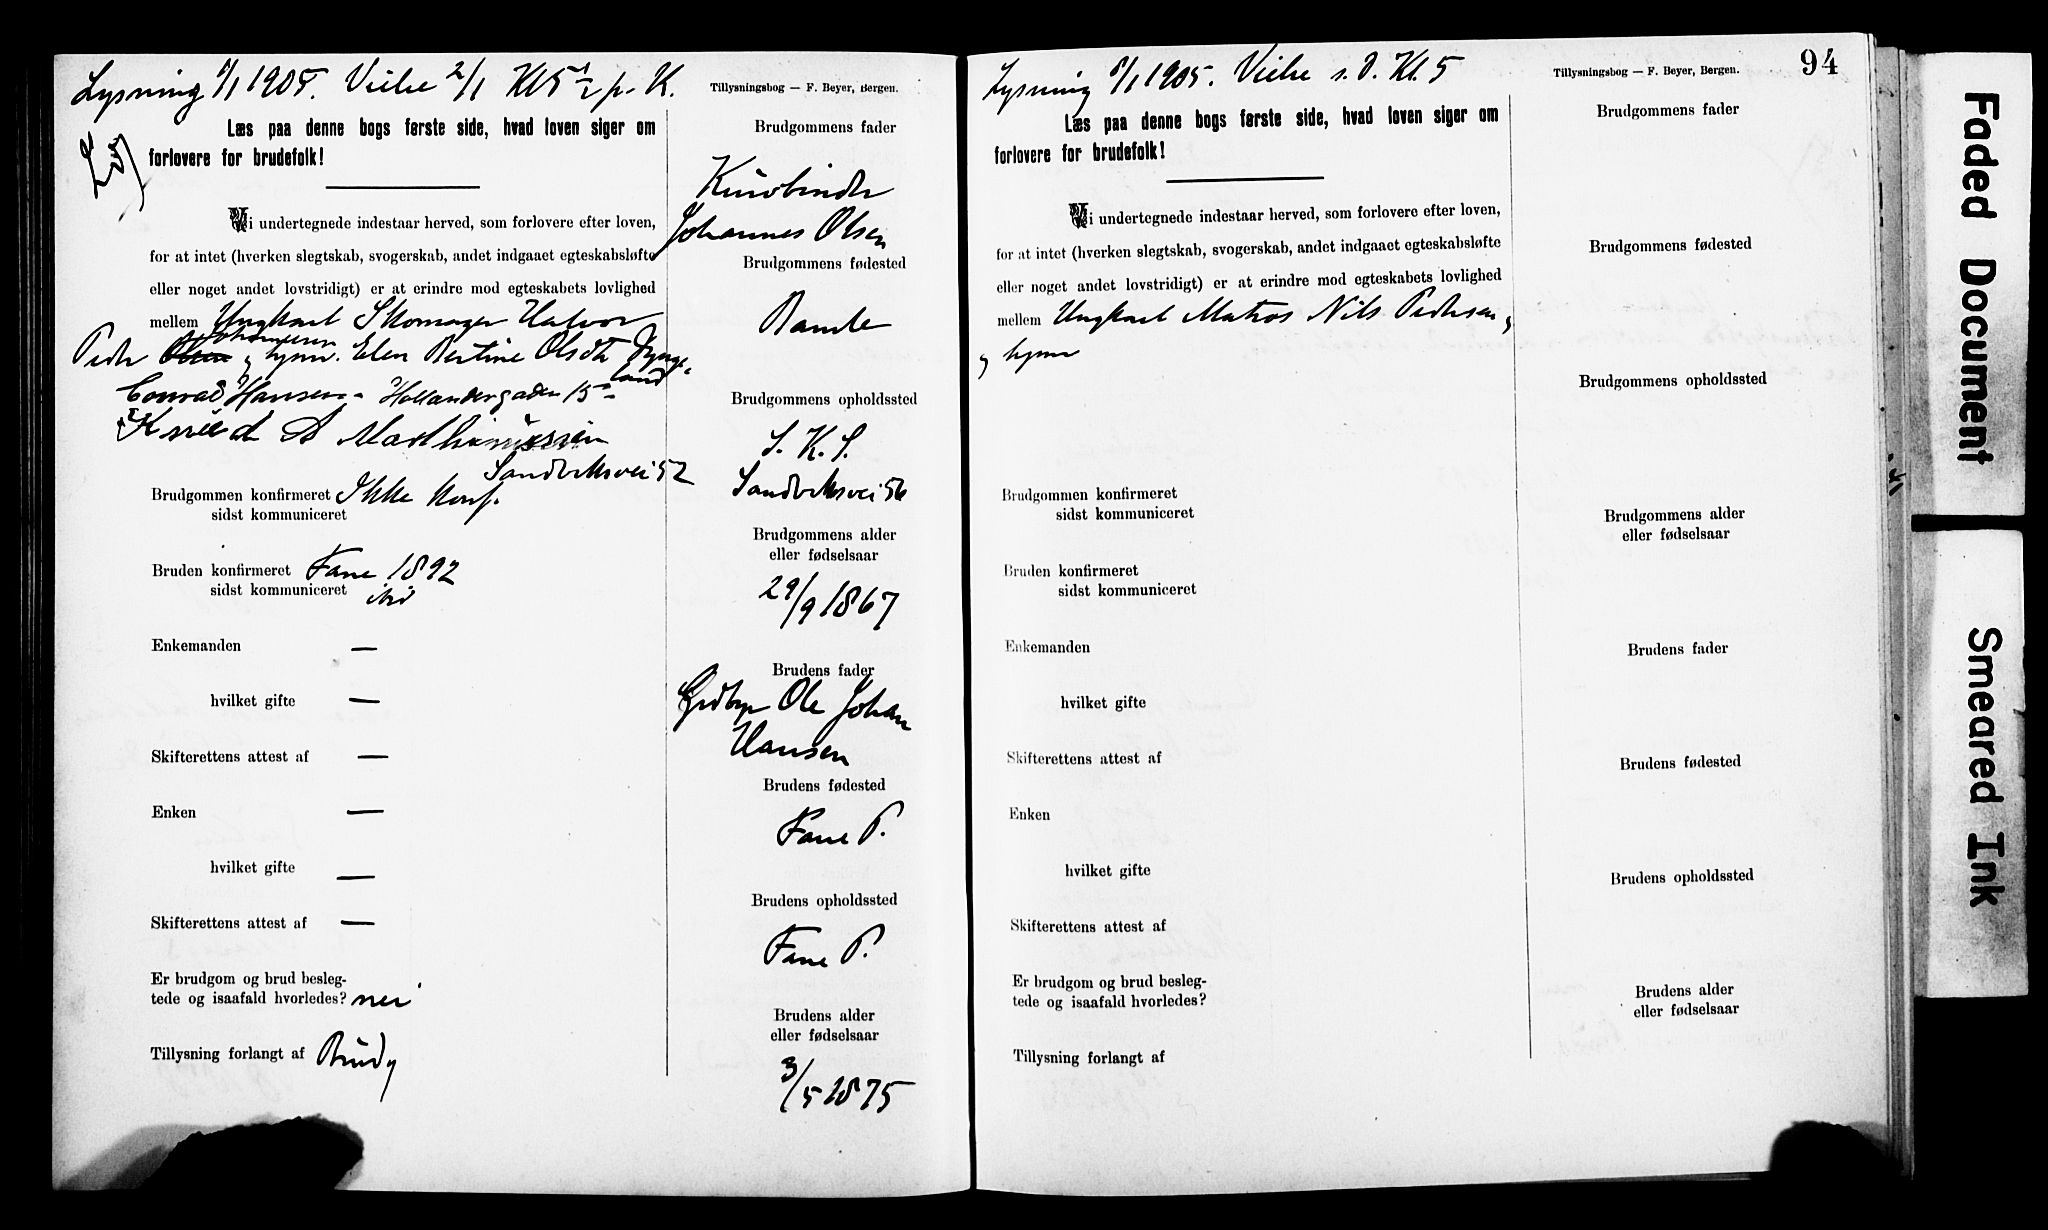 Lysning 8/1 1905. Vielse 2/1 Kl 5 1/2 p. K.
Tillysningsbog — F. Beyer, Bergen.
Læs paa denne bogs første side, hvad loven siger om
forlovere for brudefolk!
Vi undertegnede indestaar herved, som forlovere efter loven,
for at intet (hverken slegtskab, svogerskab, andet indgaaet egteskabsløfte
eller noget andet lovstridigt) er at erindre mod egteskabets lovlighed
mellem Ungkarl Skomager Halvor
Peder Olsen Johannesen og tjener. Elen Bertine Olsdtr
Conrad Hansen - Hollendergaden 15
Knud A Mathinussen
Sandviksvei 52
Brudgommen konfirmeret Ikke konf.
sidst kommuniceret
Bruden konfirmeret Fane 1892
sidst kommuniceret
Enkemanden —
hvilket gifte —
Skifterettens attest af —
Enken —
hvilket gifte —
Skifterettens attest af —
Er brudgom og brud besleg-
tede og isaafald hvorledes? nei
Tillysning forlangt af Brudg
Brudgommens fader
Kurvbinder
Johannes Olsen
Brudgommens fødested
Bamle
Brudgommens opholdssted
S. K. S.
Sandviksvei 56
Brudgommens alder
eller fødselsaar
29/9 1867
Brudens fader
Grdbr Ole Johan
Hansen
Brudens fødested
Fane P.
Brudens opholdssted
Fane P.
Brudens alder
eller fødselsaar
3/5 1875
Lysning 8/1 1905. Vielse s. D. Kl. 5
Tillysningsbog — F. Beyer, Bergen.
94
Læs paa denne bogs første side, hvad loven siger om
forlovere for brudefolk!
Vi undertegnede indestaar herved, som forlovere efter loven,
for at intet (hverken slegtskab, svogerskab, andet indgaaet egteskabsløfte
eller noget andet lovstridigt) er at erindre mod egteskabets lovlighed
mellem Ungkarl Matros Nils Pedersen
og tjener
Brudgommen konfirmeret
sidst kommuniceret
Bruden konfirmeret
sidst kommuniceret
Enkemanden
hvilket gifte
Skifterettens attest af
Enken
hvilket gifte
Skifterettens attest af
Er brudgom og brud besleg-
tede og isaafald hvorledes?
Tillysning forlangt af
Brudgommens fader
Brudgommens fødested
Brudgommens opholdssted
Brudgommens alder
eller fødselsaar
Brudens fader
Brudens fødested
Brudens opholdssted
Brudens alder
eller fødselsaar
Faded Document
Smeared Ink